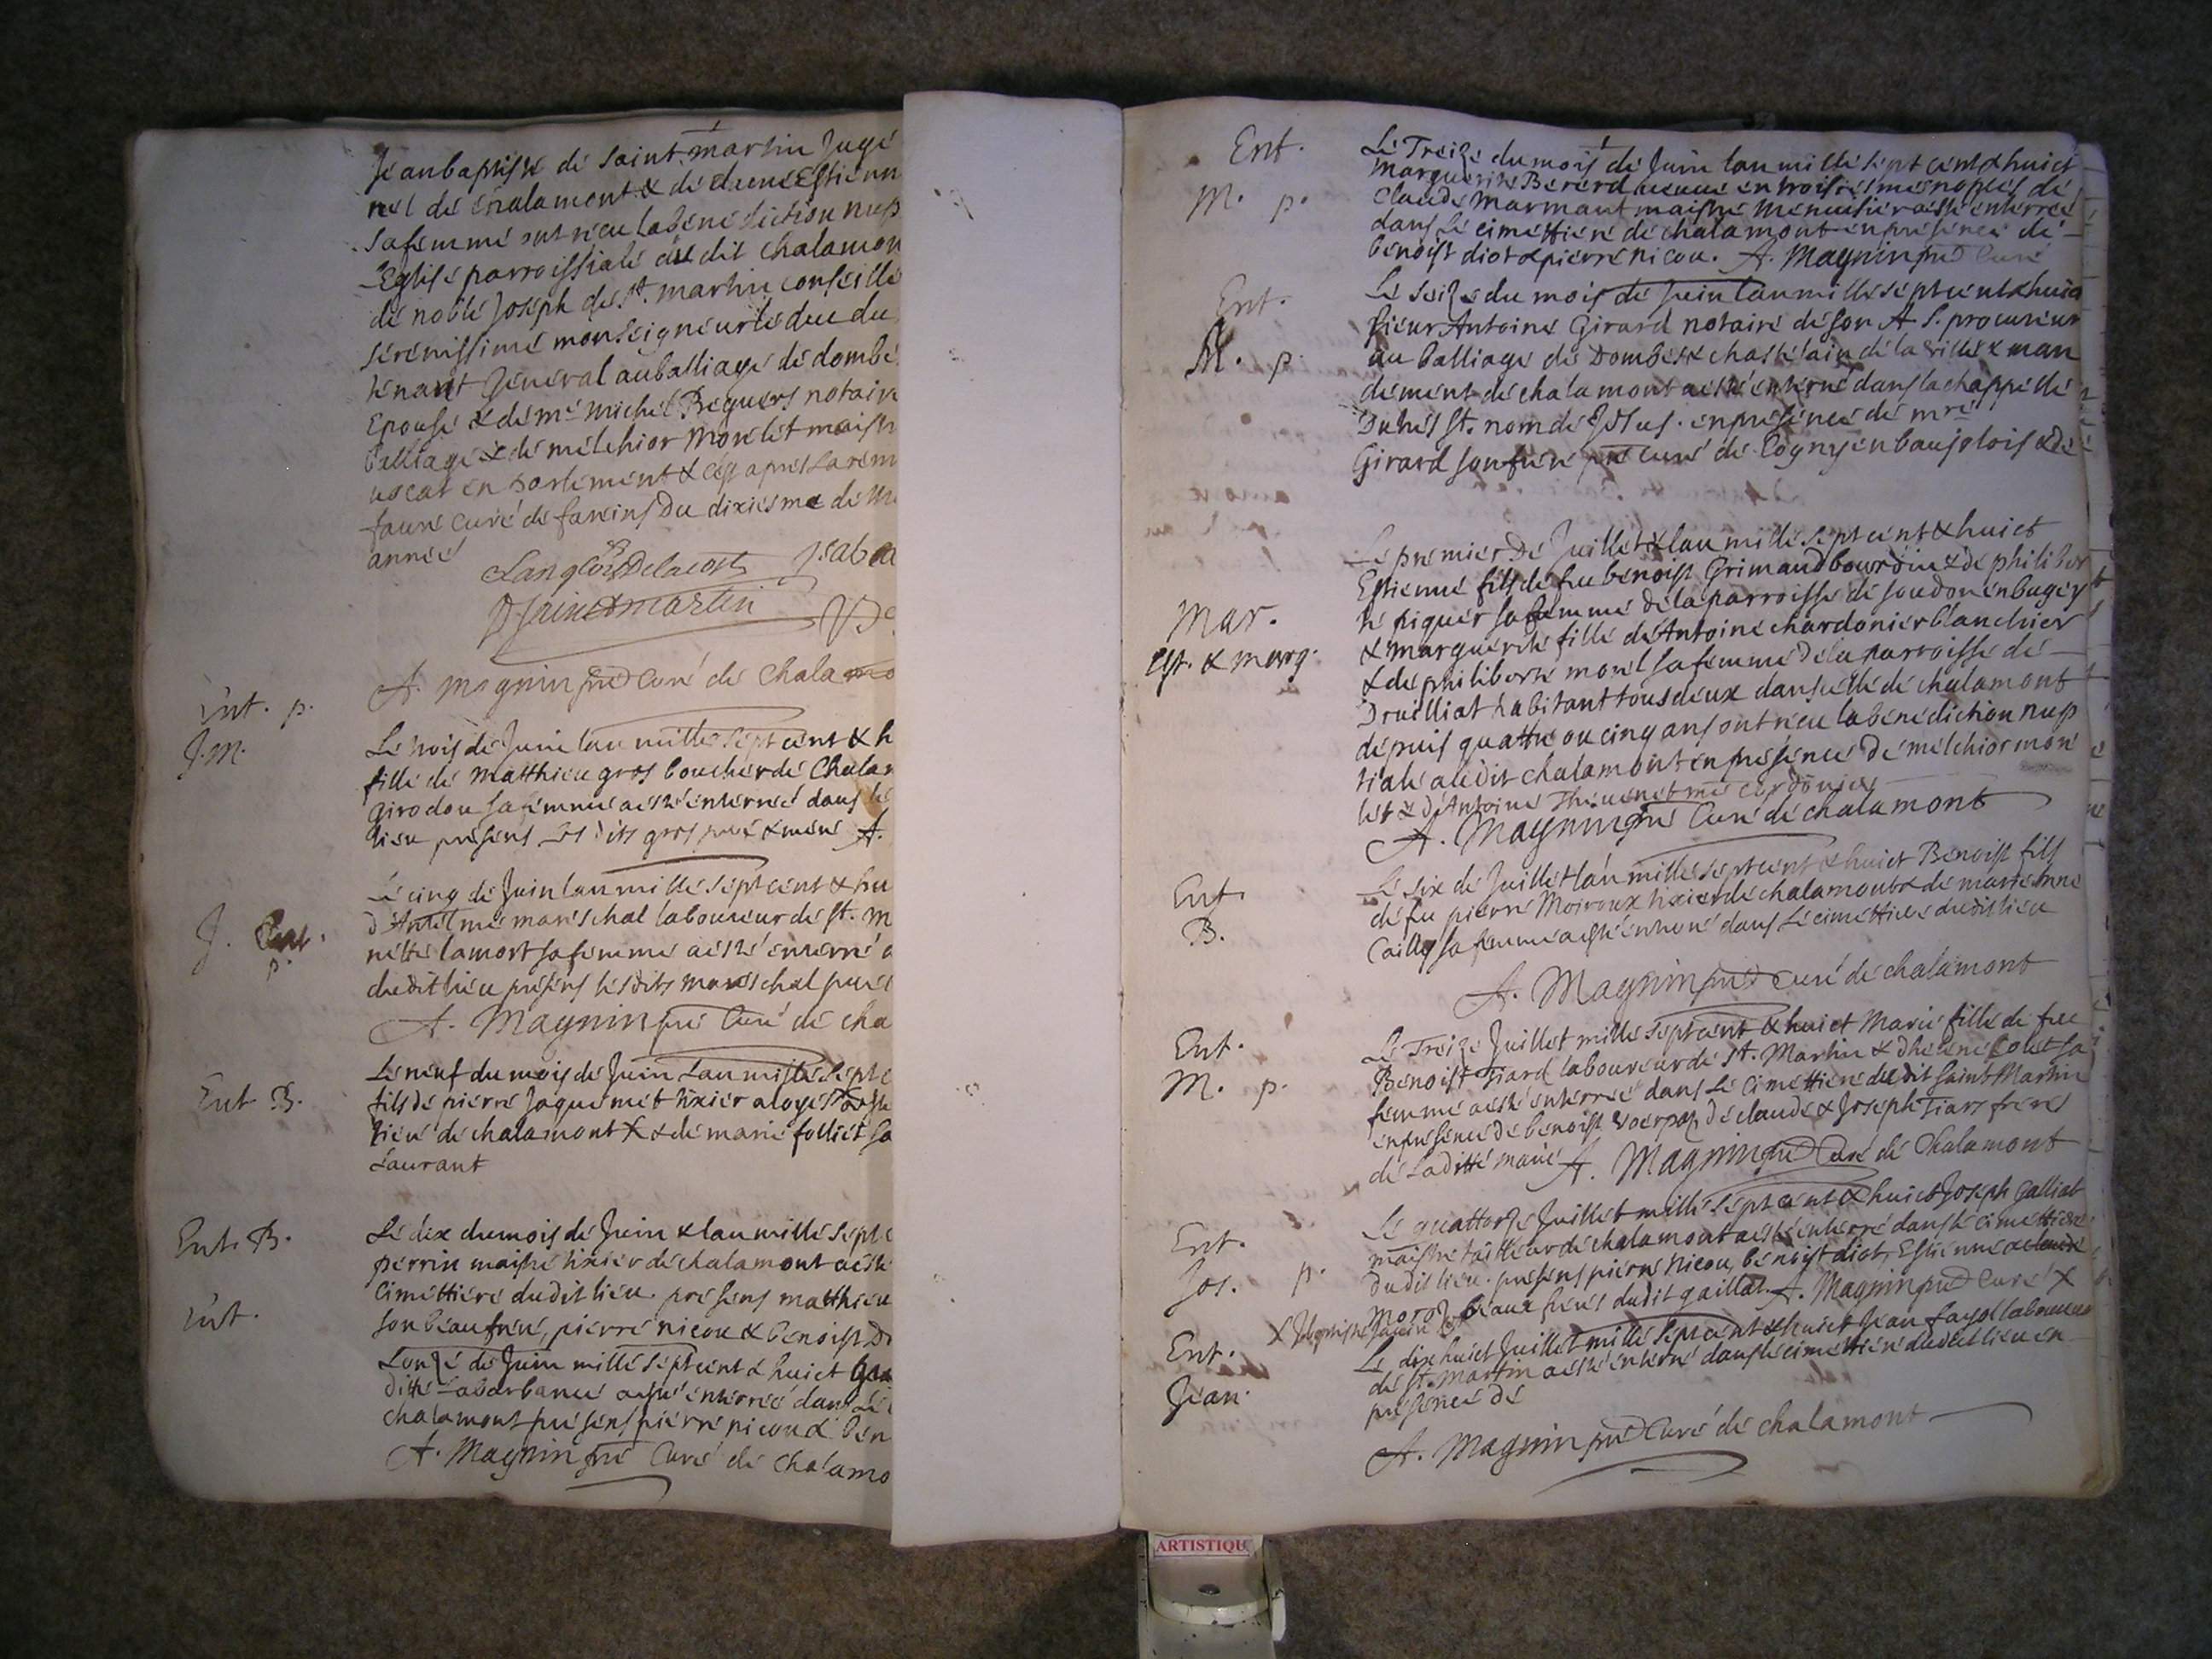 Jeanbaptiste de saint martin Juge
nel de chalamont & de dame Estienn
sa femme ont receu la benediction nup
Eglise parroissiale du dit chalamon
de noble Joseph de st. martin conseille
serenissime monseigneur le duc du
tenant General au balliage de dombe
Epouse & de me michel Breguers notaire
balliage & de melchior Monlet maistr
uocat en parlement & cest apres la rem
faure curé de fareins Du dixiesme de
année
Langlois Delacost Isabea
Dsainctmartin De
A. magnin pre Curé de Chalamo
Ent. p.
J. M.
Le trois de Juin lan mille sept cent & h
fille de Matthieu gros boucher de Chalam
girodon sa femme a esté enterreé dans le
lieu presens les dits gros pere & mere A.
J. Ent.
p.
Le cinq de Juin lan mille sept cent & hu
d'Antelme mareschal laboureur de st. M
nette lamort sa femme a esté enterré a
dudit lieu presens lesdits mareschal pere
A. Magnin pre Curé de cha
Ent B.
Le neuf du mois de Juin Lan mille sept c
fils de pierre Jaquemet tixier a loyes a este
tiere de chalamont X & de marie folliet sa
Laurant
Ent. B.
Le dix du mois de Juin & lan mille sept c
perrin maistre tixier de chalamont a este
Cimettiere dudit lieu. presens matthieu
son beaufrere, pierre nicou & benoist Di
Ent.
Lonze de Juin mille sept cent & huict
ditte Labarbance a esté enterreé dans Le
chalamont presens pierre nicoud ben
A. Magnin pre Curé de chalamo
Ent.
M. p.
Le Treize du mois de Juin lan mille sept cent & huict
marguerite Bererd veuue en troisiesme nopces de
Claude Marmant maistre Menuisier a esté enterreé
dans le cimettiere de chalamont en presence de
benoist diot & pierre nicou. A. Magnin pre Curé
Ent.
A. p.
Le seize du mois de Juin lan mille sept cent & huict
sieur Antoine Girard notaire de son A S. procureur
au balliage de Dombes & chastelain de la ville & man
dement de chalamont a esté enterré dans la chappelle
Du tres st. nom de Jesus. en presence de mre
Girard son frere pre curé de Cogny en baujolois & de
Mar.
Est. & marg.
Le premier de Juillet & lan mille sept cent & huict
Estienne fils de feu benoist Grimaud bourdin & de philiber
te piquer sa femme de la parroisse de soudon en bugey
& marguerite fille de Antoine chardonier blanchier
& de philiberte morel sa femme de la parroisse de
Druilliat habitant tous deux dans celle de chalamont
depuis quattre ou cinq ans ont receu la benediction nup
tiale au dit chalamont en presence de melchior mon
let & d'Antoine Theuenet me cordonier
A. Magnin pre Curé de chalamont
Ent
B.
Le six de Juillet lan mille sept cent & huict Benoist fils
de feu pierre Moiroux tixier de chalamont & de marie Anne
Cailly sa femme a esté enterré dans le cimettiere dudit lieu
A. Magnin pre Curé de chalamont
Ent.
M. p.
Le Treize Juillet mille sept cent & huict Marie fille de feu
Benoist Tiard laboureur de st. Martin & dhelene Colet sa
femme a esté enterreé dans le cimettiere dudit saint Martin
en presence de benoist de claude & Joseph Tiars freres
de Laditte marie A. Magnin pre Curé de Chalamont
Ent.
Jos. p.
Le quattorze Juillet mille sept cent & huict Joseph galliat
maistre tailleur de chalamont a esté enterré dans le cimettiere
dudit lieu. presens pierre nicou, benoist diot, Estienne & claude
Moroz beaux freres dudit gaillat. A. Magnin pre Curé X
Ent.
Jean.
Le dix huict Juillet mille sept cent & huict Jean fayol laboureur
de st. Martin a esté enterré dans le cimettiere dudit lieu en
presence de
A. Magnin pre Curé de chalamont
ARTISTIQU